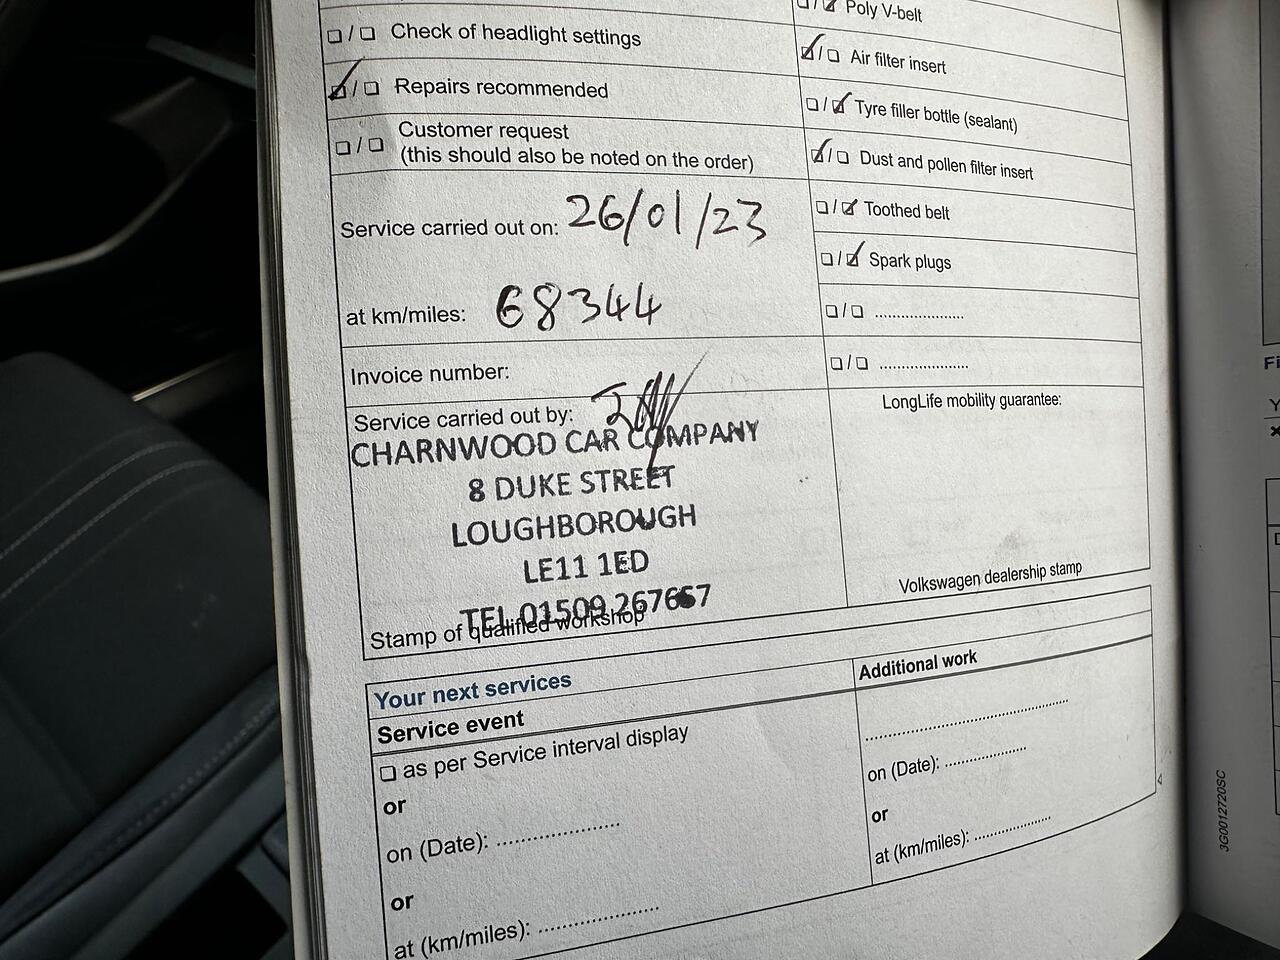 ❏ / ❏ Check of headlight settings
☑ / ❏ Repairs recommended
❏ / ❏ Customer request
(this should also be noted on the order)
Service carried out on: 26/01/23
at km/miles: 68344
Invoice number:
Service carried out by:
CHARNWOOD CAR COMPANY
8 DUKE STREET
LOUGHBOROUGH
LE11 1ED
TEL 01509 267667
Stamp of qualified workshop
❏ / ☑ Poly V-belt
☑ / ❏ Air filter insert
❏ / ☑ Tyre filler bottle (sealant)
☑ / ❏ Dust and pollen filter insert
❏ / ☑ Toothed belt
❏ / ☑ Spark plugs
❏ / ❏ .....................
❏ / ❏ .....................
LongLife mobility guarantee:
Volkswagen dealership stamp
Your next services
Service event
❏ as per Service interval display
or
on (Date): .....................
or
at (km/miles): .....................
Additional work
...................................
on (Date): ..............
or
at (km/miles): ..............
3G0012720SC